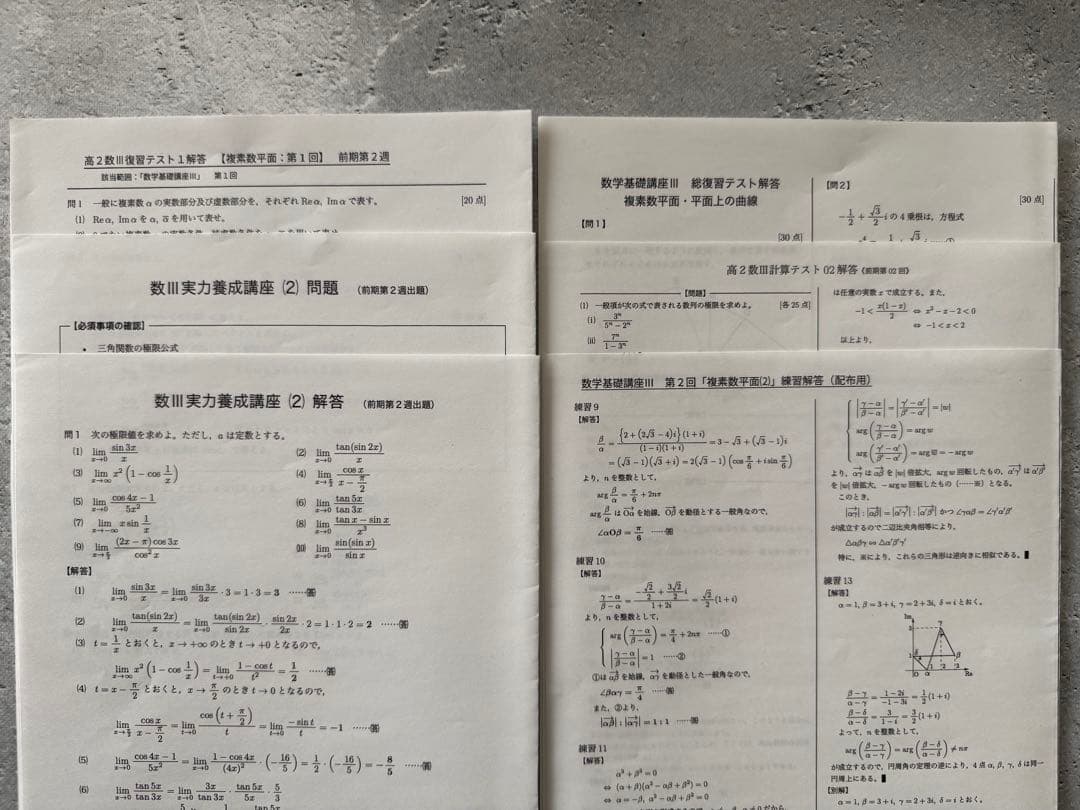 高2数Ⅲ復習テスト1解答 【複素数平面：第1回】 前期第2週
該当範囲：「数学基礎講座Ⅲ」 第1回
問1 一般に複素数 α の実数部分及び虚数部分を、それぞれ Re α, Im α で表す。 [20点]
(1) Re α, Im α を α, ᾱ を用いて表せ。
数Ⅲ実力養成講座 (2) 問題 （前期第2週出題）
【必須事項の確認】
• 三角関数の極限公式
数Ⅲ実力養成講座 (2) 解答 （前期第2週出題）
問1 次の極限値を求めよ。ただし、a は定数とする。
(1) lim_{x→0} sin 3x / x (2) lim_{x→0} tan(sin 2x) / x
(3) lim_{x→∞} x² (1 − cos 1/x) (4) lim_{x→π/2} cos x / (x − π/2)
(5) lim_{x→0} (cos 4x − 1) / 5x² (6) lim_{x→0} tan 5x / tan 3x
(7) lim_{x→−∞} x sin 1/x (8) lim_{x→0} (tan x − sin x) / x³
(9) lim_{x→π/2} (2x − π) cos 3x / cos² x (10) lim_{x→0} sin(sin x) / sin x
【解答】
(1) lim_{x→0} sin 3x / x = lim_{x→0} sin 3x / 3x · 3 = 1 · 3 = 3 ……答
(2) lim_{x→0} tan(sin 2x) / x = lim_{x→0} tan(sin 2x) / sin 2x · sin 2x / 2x · 2 = 1 · 1 · 2 = 2 ……答
(3) t = 1/x とおくと、x → +∞ のとき t → +0 となるので、
lim_{x→∞} x² (1 − cos 1/x) = lim_{t→+0} (1 − cos t) / t² = 1/2 ……答
(4) t = x − π/2 とおくと、x → π/2 のとき t → 0 となるので、
lim_{x→π/2} cos x / (x − π/2) = lim_{t→0} cos (t + π/2) / t = lim_{t→0} −sin t / t = −1 ……答
(5) lim_{x→0} (cos 4x − 1) / 5x² = lim_{x→0} (1 − cos 4x) / (4x)² · (−16/5) = 1/2 · (−16/5) = −8/5 ……答
(6) lim_{x→0} tan 5x / tan 3x = lim_{x→0} 3x / tan 3x · tan 5x / 5x · 5/3
数学基礎講座Ⅲ 総復習テスト解答
複素数平面・平面上の曲線
【問1】
[30点]
【問2】
[30点]
−1/2 + √3/2 i の4乗根は、方程式
高2数Ⅲ計算テスト02解答《前期第02回》
【問題】
(1) 一般項が次の式で表される数列の極限を求めよ。 [各25点]
(i) 3ⁿ / (5ⁿ − 2ⁿ)
(ii) 7ⁿ / (1 − 3ⁿ)
は任意の実数 x で成立する。また、
−1 < x(1 − x) / 2 ⇔ x² − x − 2 < 0
⇔ −1 < x < 2
以上より、
数学基礎講座Ⅲ 第2回「複素数平面(2)」練習解答（配布用）
練習9
【解答】
β/α = {2 + (2√3 − 4)i}(1 + i) / (1 − i)(1 + i) = 3 − √3 + (√3 − 1)i
= (√3 − 1)(√3 + i) = 2(√3 − 1)(cos π/6 + i sin π/6)
より、n を整数として、
arg β/α = π/6 + 2nπ
arg β/α は Oα を始線、Oβ を動径とする一般角なので、
∠αOβ = π/6 ……答
練習10
【解答】
(γ − α) / (β − α) = (−√2/2 + 3√2/2 i) / (1 + 2i) = √2/2 (1 + i)
より、n を整数として、
arg ((γ − α) / (β − α)) = π/4 + 2nπ ……①
|(γ − α) / (β − α)| = 1 ……②
①は αβ を始線、αγ を動径とした一般角なので、
∠βαγ = π/4 ……答
また、②より、
|αβ| : |αγ| = 1 : 1 ……答
練習11
【解答】
α² + β² = 0
|(γ − α) / (β − α)| = |(γ′ − α′) / (β′ − α′)| = |w|
arg ((γ − α) / (β − α)) = arg w
arg ((γ′ − α′) / (β′ − α′)) = arg w̄ = −arg w
より、αγ は αβ を |w| 倍拡大、arg w 回転したもの、α′γ′ は α′β′
を |w| 倍拡大、−arg w 回転したもの（……※）となる。
このとき、
|αγ| : |αβ| = |α′γ′| : |α′β′| かつ ∠γαβ = ∠γ′α′β′
が成立するので二辺比夾角相等により、
△αβγ ∽ △α′β′γ′
特に、※により、これらの三角形は逆向きに相似である。
練習13
【解答】
α = 1, β = 3 + i, γ = 2 + 3i, δ = i とおく。
Im
3
γ
1
δ
β
O α 2 3 Re
(β − γ) / (α − γ) = (1 − 2i) / (−1 − 3i) = 1/2 (1 + i)
(β − δ) / (α − δ) = 3 / (1 − i) = 3/2 (1 + i)
よって、n を整数として、
arg ((β − γ) / (α − γ)) = arg ((β − δ) / (α − δ)) ≠ nπ
が成立するので、円周角の定理の逆により、4点 α, β, γ, δ は同一
円周上にある。
【別解】
α = 1, β = 3 + i, γ = 2 + 3i, δ = i とおく。